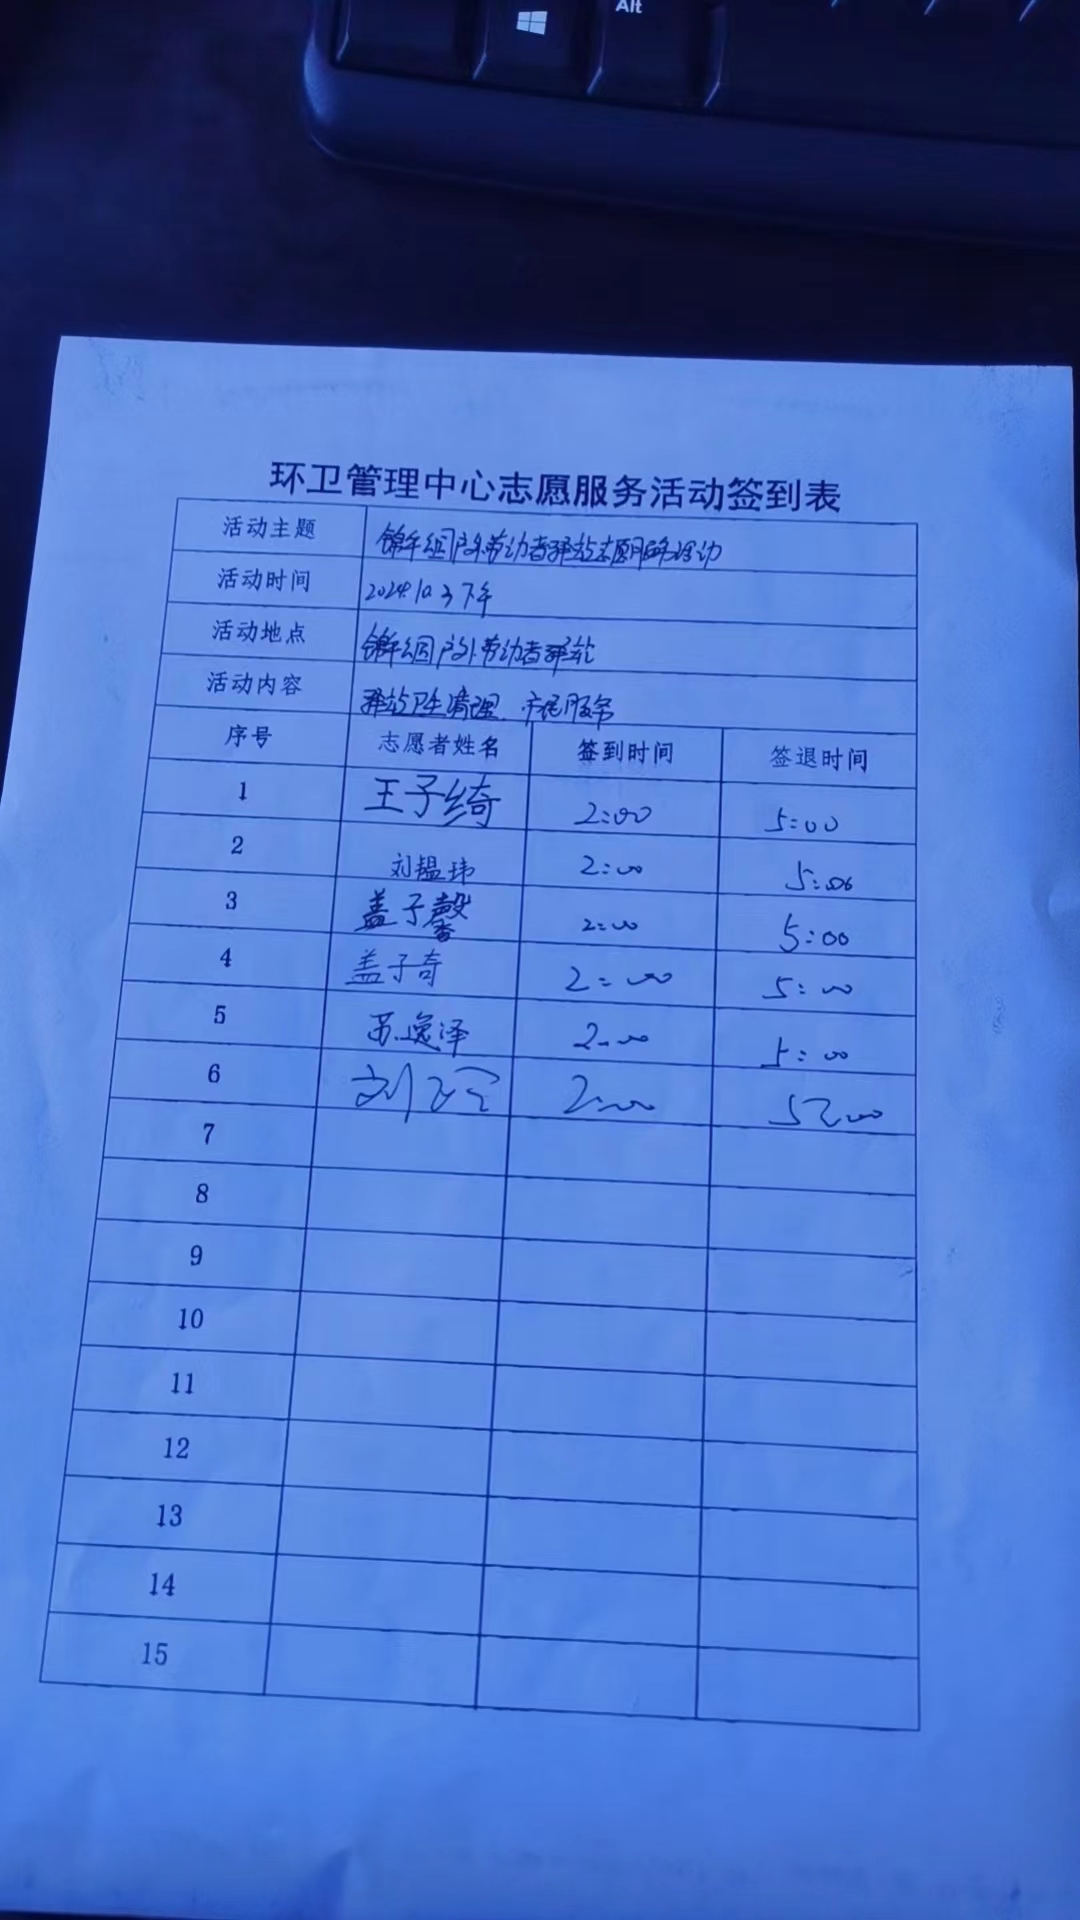 Alt
环卫管理中心志愿服务活动签到表
活动主题 锦绣园户外劳动者驿站志愿服务活动
活动时间 2024.10.3下午
活动地点 户外劳动者驿站
活动内容 驿站卫生清理、市民服务
序号 志愿者姓名 签到时间 签退时间
1 王子绮 2:00 5:00
2 刘韫玮 2:00 5:00
3 盖子馨 2:00 5:00
4 盖子奇 2:00 5:00
5 苏逸泽 2:00 5:00
6 刘 2:00 5:00
7
8
9
10
11
12
13
14
15